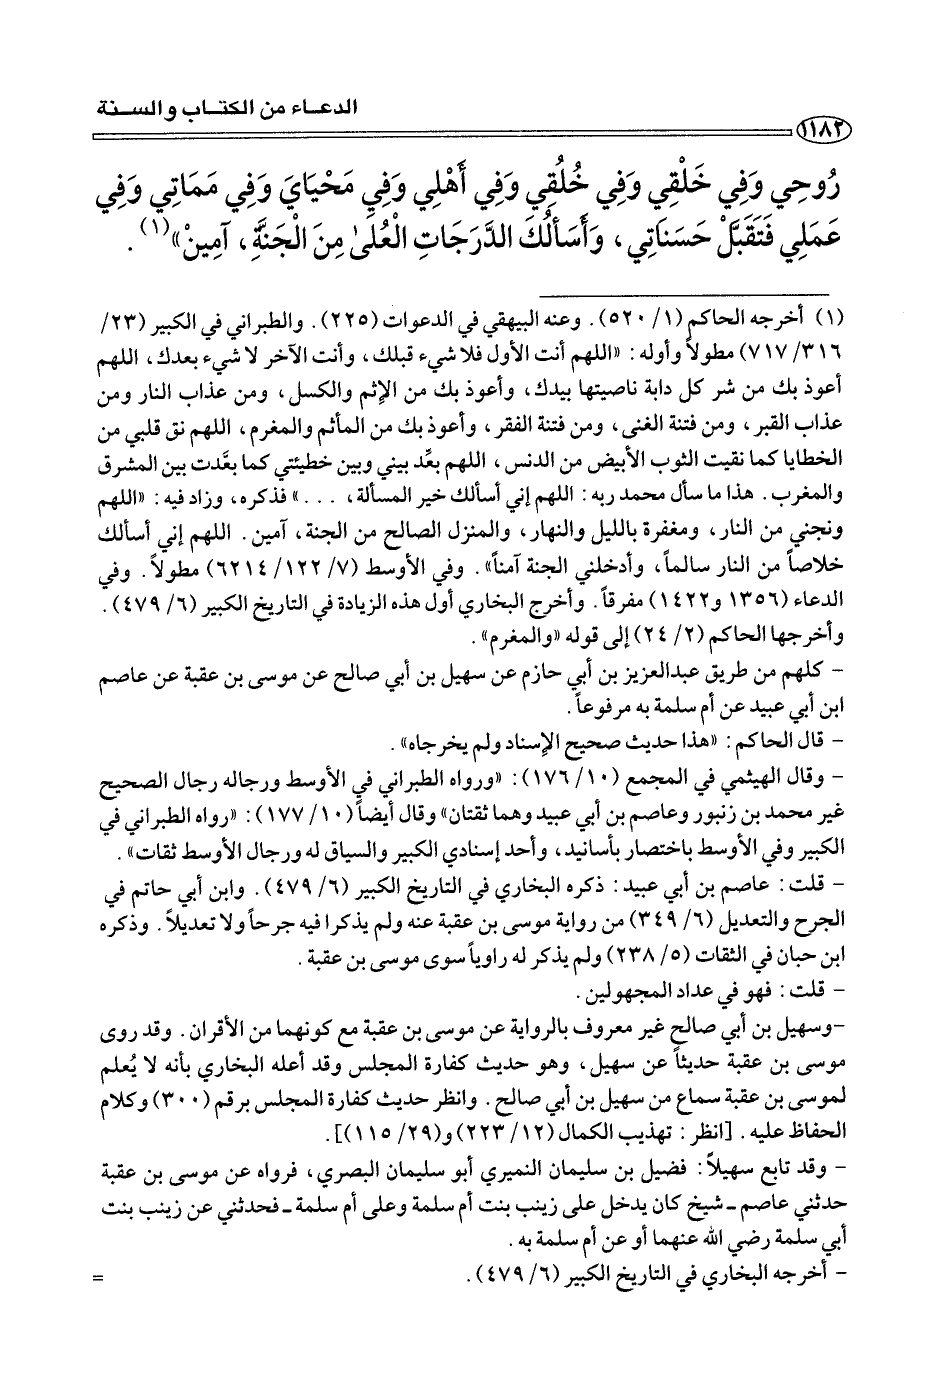 الدعـاء من الكتـاب والسـنة
١١٨٢
رُوحِي وَفِي خَلْقِي وَفِي خُلُقِي وَفِي أَهْلِي وَفِي مَحْيَايَ وَفِي مَمَاتِي وَفِي
عَمَلِي فَتَقَبَّلْ حَسَنَاتِي، وَأَسَأَلُكَ الدَّرَجَاتِ الْعُلَىٰ مِنَ الْجَنَّةِ، آمِينْ»(١).
(١) أخرجه الحاكم (١/ ٥٢٠). وعنه البيهقي في الدعوات (٢٢٥). والطبراني في الكبير (٢٣/
٣١٦/ ٧١٧) مطولاً وأوله: «اللهم أنت الأول فلا شيء قبلك، وأنت الآخر لا شيء بعدك، اللهم
أعوذ بك من شر كل دابة ناصيتها بيدك، وأعوذ بك من الإثم والكسل، ومن عذاب النار ومن
عذاب القبر، ومن فتنة الغنى، ومن فتنة الفقر، وأعوذ بك من المأثم والمغرم، اللهم نق قلبي من
الخطايا كما نقيت الثوب الأبيض من الدنس، اللهم بعِّد بيني وبين خطيئتي كما بعَّدت بين المشرق
والمغرب. هذا ما سأل محمد ربه: اللهم إني أسألك خير المسألة، ...» فذكره، وزاد فيه: «اللهم
ونجني من النار، ومغفرة بالليل والنهار، والمنزل الصالح من الجنة، آمين. اللهم إني أسألك
خلاصاً من النار سالماً، وأدخلني الجنة آمناً». وفي الأوسط (٧/ ١٢٢/ ٦٢١٤) مطولاً. وفي
الدعاء (١٣٥٦ و١٤٢٢) مفرقاً. وأخرج البخاري أول هذه الزيادة في التاريخ الكبير (٦/ ٤٧٩).
وأخرجها الحاكم (٢/ ٢٤) إلى قوله «والمغرم».
- كلهم من طريق عبدالعزيز بن أبي حازم عن سهيل بن أبي صالح عن موسى بن عقبة عن عاصم
ابن أبي عبيد عن أم سلمة به مرفوعاً.
- قال الحاكم: «هذا حديث صحيح الإسناد ولم يخرجاه».
- وقال الهيثمي في المجمع (١٠/ ١٧٦): «ورواه الطبراني في الأوسط ورجاله رجال الصحيح
غير محمد بن زنبور وعاصم بن أبي عبيد وهما ثقتان» وقال أيضاً (١٠/ ١٧٧): «رواه الطبراني في
الكبير وفي الأوسط باختصار بأسانيد، وأحد إسنادي الكبير والسياق له ورجال الأوسط ثقات».
- قلت: عاصم بن أبي عبيد: ذكره البخاري في التاريخ الكبير (٦/ ٤٧٩). وابن أبي حاتم في
الجرح والتعديل (٦/ ٣٤٩) من رواية موسى بن عقبة عنه ولم يذكرا فيه جرحاً ولا تعديلاً. وذكره
ابن حبان في الثقات (٥/ ٢٣٨) ولم يذكر له راوياً سوى موسى بن عقبة.
- قلت: فهو في عداد المجهولين.
-وسهيل بن أبي صالح غير معروف بالرواية عن موسى بن عقبة مع كونهما من الأقران. وقد روى
موسى بن عقبة حديثاً عن سهيل، وهو حديث كفارة المجلس وقد أعله البخاري بأنه لا يُعلم
لموسى بن عقبة سماع من سهيل بن أبي صالح. وانظر حديث كفارة المجلس برقم (٣٠٠) وكلام
الحفاظ عليه. [انظر: تهذيب الكمال (١٢/ ٢٢٣) و(٢٩/ ١١٥)].
- وقد تابع سهيلاً: فضيل بن سليمان النميري أبو سليمان البصري، فرواه عن موسى بن عقبة
حدثني عاصم ـ شيخ كان يدخل على زينب بنت أم سلمة وعلى أم سلمة ـ فحدثني عن زينب بنت
أبي سلمة رضي الله عنهما أو عن أم سلمة به.
- أخرجه البخاري في التاريخ الكبير (٦/ ٤٧٩).
=